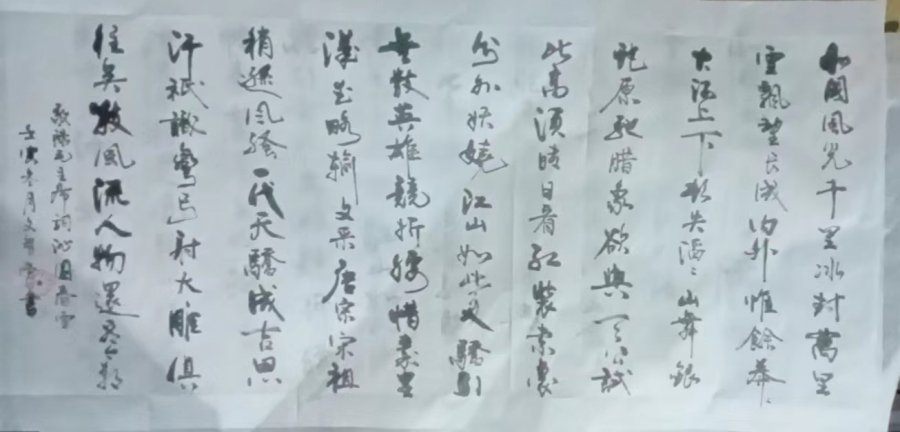 北國風光千里冰封萬里
雪飄望長城內外惟餘莽〻
大河上下頓失滔〻山舞銀
蛇原馳腊象欲與天公試
比高須晴日看紅裝素裹
分外妖嬈江山如此多驕引
無數英雄競折腰惜秦皇
漢武略輸文采唐宗宋祖
稍遜風騷一代天驕成吉思
汗祇識彎弓射大雕俱
往矣數風流人物還看今朝
敬録毛主席詞沁園春雪
壬寅冬月文 書